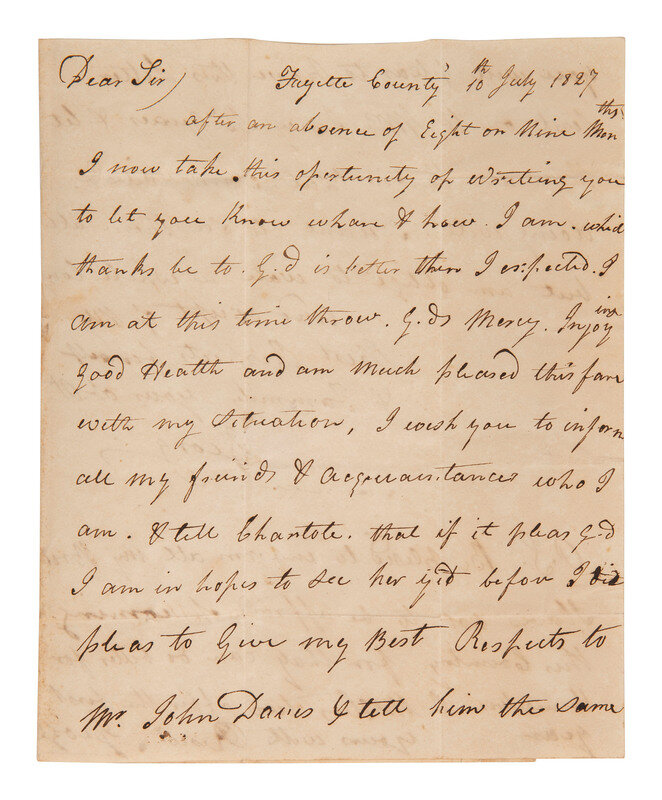 Dear Sir) Fayette County 10th July 1827
after an absence of Eight or Nine Months
I now take this opertunity of Writeing you
to let you Know whare & how I am. which
thanks be to G.d is better then I expected. I
am at this time throw. G.ds Mercy. Injoying
good Health and am Much pleased this fare
with my Situation, I wish you to inform
all my friends & acquaintances who I
am. & tell Charlote. that if it pleas G.d
I am in hopes to See her y.d before I
pleas to Give my Best Respects to
Mr. John Davis & tell him the Same